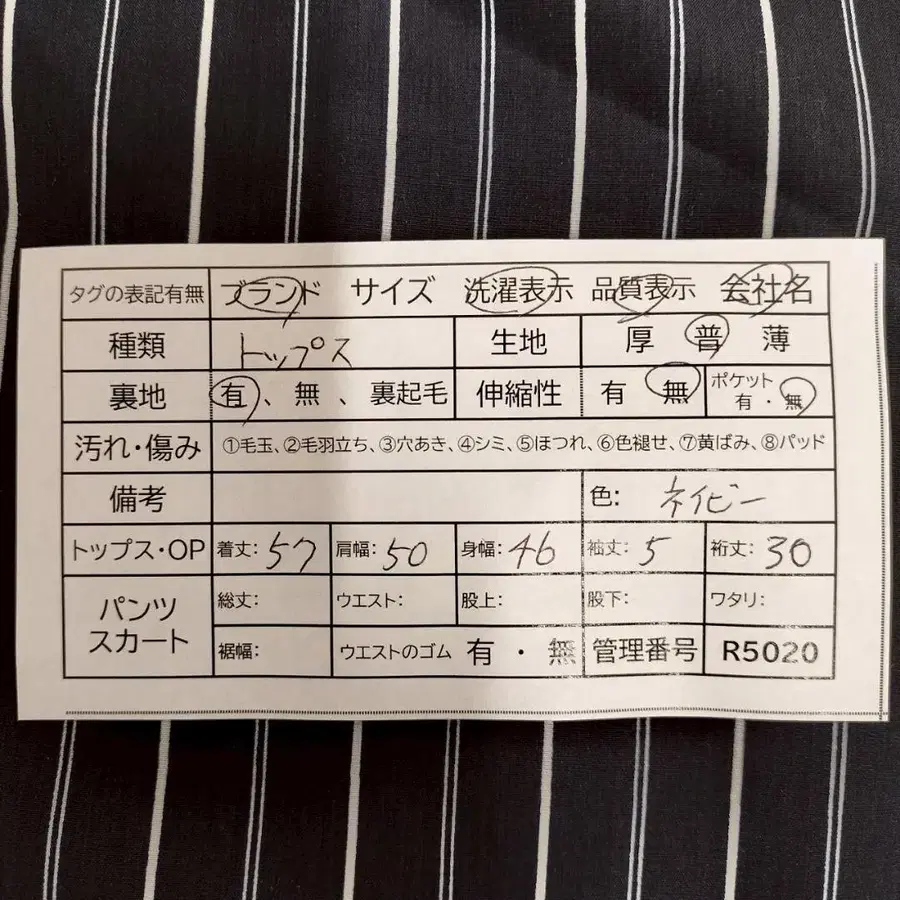 タグの表記有無 ブランド サイズ 洗濯表示 品質表示 会社名
種類 トップス 生地 厚 普 薄
裏地 有、無、裏起毛 伸縮性 有 無 ポケット 有・無
汚れ・傷み ①毛玉、②毛羽立ち、③穴あき、④シミ、⑤ほつれ、⑥色褪せ、⑦黄ばみ、⑧パッド
備考 色: ネイビー
トップス・OP 着丈: 57 肩幅: 50 身幅: 46 袖丈: 5 裄丈: 30
パンツ スカート 総丈: ウエスト: 股上: 股下: ワタリ:
裾幅: ウエストのゴム 有・無 管理番号 R5020